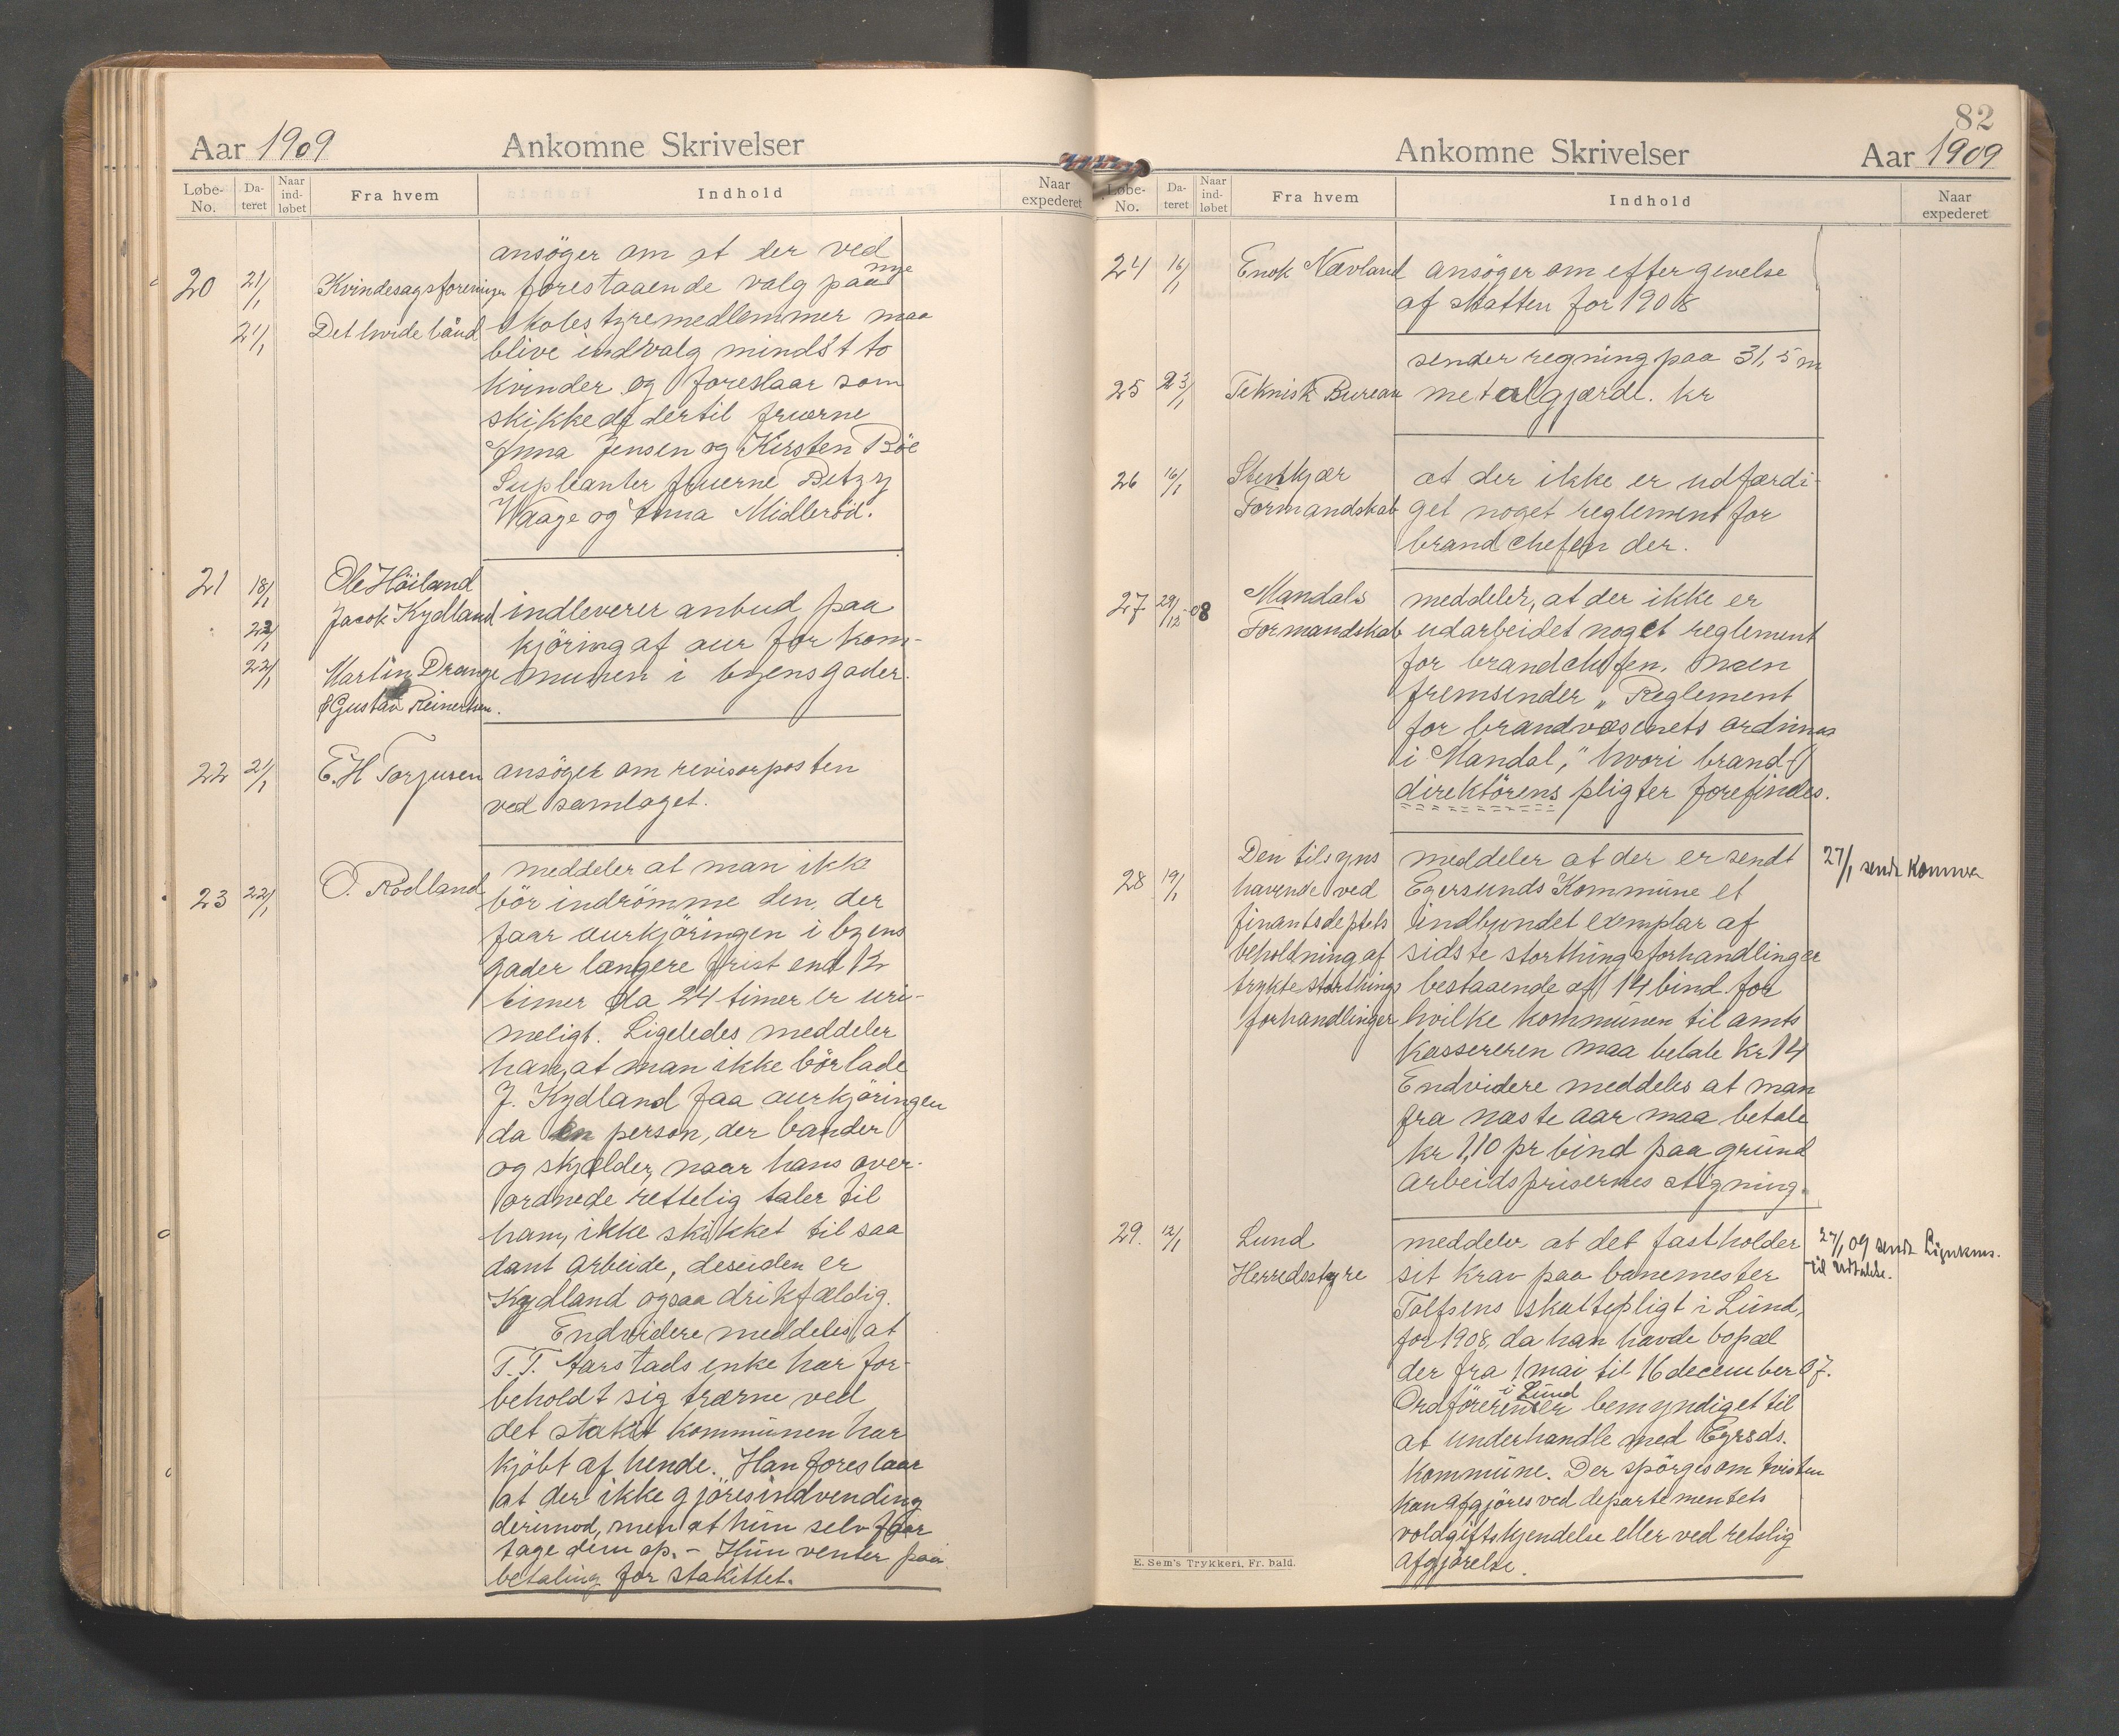 Aar 1909 Ankomne Skrivelser
Løbe-No. Da-teret Naar ind-løbet Fra hvem Indhold Naar expederet
ansöger om at der ved
20 21/1 Kvindesagsforeningen forestaaende valg paa nye
21/1 Det hvide bånd skolestyremedlemmer maa
blive indvalg mindst to
kvinder og foreslaar som
skikkede dertil fruerne
Anna Jensen og Kirsten Böe
Supleanter fruerne Betzy
Waage og Anna Midbröd.
21 18/1 Ole Höiland
23/1 Jacob Kydland indleverer anbud paa
kjöring af aur for kom-
22/1 Martin Drange munen i byens gader.
& Gustav Reinertsen.
22 21/1 E. H Torjusen ansöger om revisorposten
ved samlaget.
meddeler at man ikke
23 22/1 O. Rodland bör indrömme den, der
faar aurkjöringen i byens
gader længere frist end 12
timer da 24 timer er uri-
meligt. Ligeledes meddeler
han, at man ikke bör lade
J. Kydland faa aurkjöringen
da en person, der bander
og skjælder, naar hans over-
ordnede rettelig taler til
ham, ikke skikket til saa
dant arbeide, desuden er
Kydland ogsaa drikfældig.
Endvidere meddeles, at
T. T. Aarstads enke har for-
beholdt sig trærne ved
det stakit kommunen har
kjöbt af hende. Han foreslaar
at der ikke gjöres indvending
derimod, men at hun selv faar
tage dem op. - Hun venter paa
betaling for stakittet.
82
Ankomne Skrivelser Aar 1909
Løbe-No. Da-teret Naar ind-løbet Fra hvem Indhold Naar expederet
24 16/1 Enok Nævland ansöger om eftergivelse
af skatten for 1908
sender regning paa 31,5 m
25 23/1 Teknisk Bureau metalgjærde. kr
26 16/1 Stenkjær at der ikke er udfærdi-
Formandskab get noget reglement for
brandchefen der.
27 29/12-08 Mandals meddeler, at der ikke er
Formandskab udarbeidet noget reglement
for brandchefen, men
fremsender „Reglement
for brandvæsenets ordning
i Mandal," hvori brand-
direktörens pligter forefindes.
Den tilsyns meddeler at der er sendt 27/1 sendt
28 19/1 havende ved Egersunds Kommune et
finantsdeptets indbundet exemplar af
beholdning af sidste storthingsforhandlinger
trykte storthings bestaaende af 14 bind for
forhandlinger hvilke kommunen til amts
kassereren maa betale kr 14
Endvidere meddeles at man
fra næste aar maa betale
kr 1,10 pr bind paa grund
arbeidsprisernes stigning.
29. 12/1 Lund meddeler at det fastholder 27/1 09 sendt Lignkms.
Herredsstyre sit krav paa banemester til udtalelse.
Tolfsens skattepligt i Lund,
for 1908, da han havde bopæl
der fra 1 mai til 16 december 07.
i Lund
Ordföreren er bemyndiget til
at underhandle med Egrsds.
kommune. Der spörges om tvisten
kan afgjöres ved departementets
voldgiftskjendelse eller ved retslig
afgjörelse.
E. Sem's Trykkeri, Fr. hald.